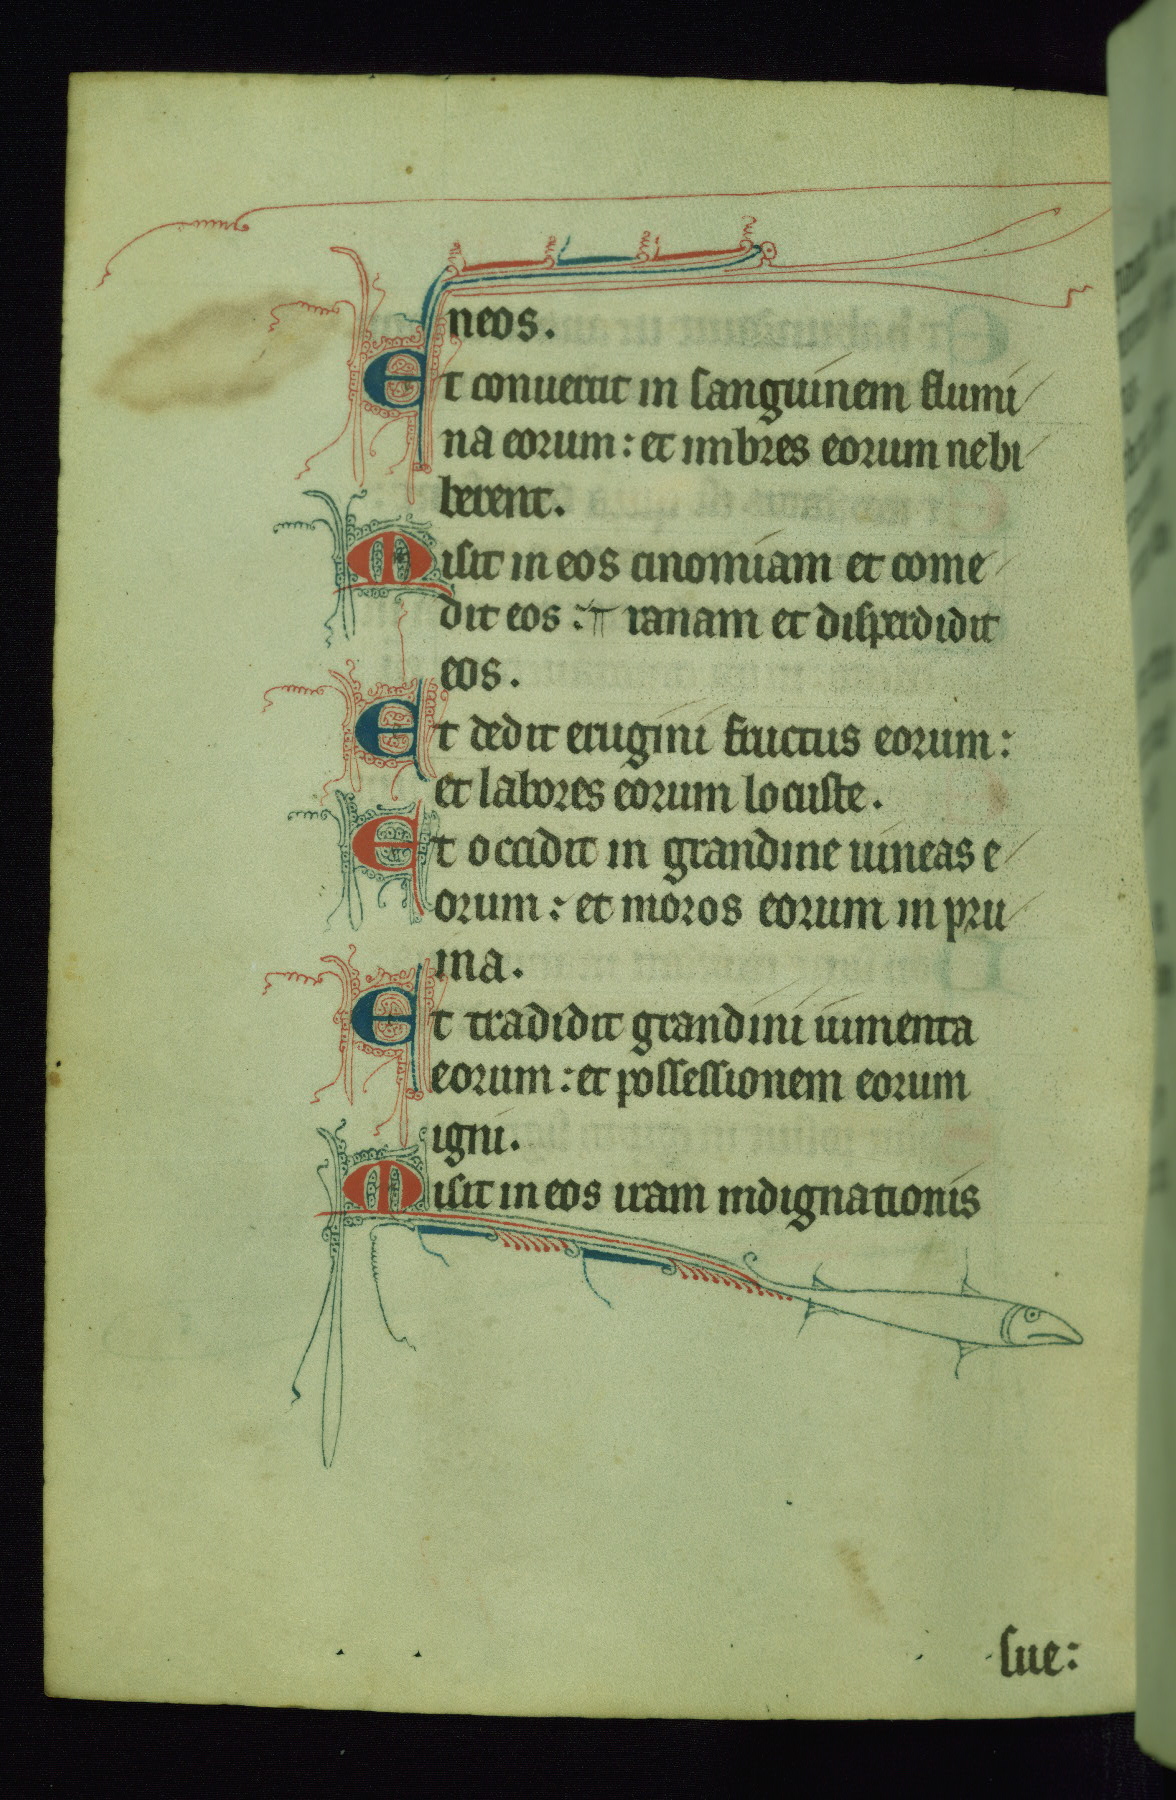 neos.
Et conuertit in sanguinem flumi
na eorum: et imbres eorum ne bi
berent.
Misit in eos cinomiam et come
dit eos: ⁊ ranam et disperdidit
eos.
Et dedit erugini fructus eorum:
et labores eorum locuste.
Et occidit in grandine uineas e
orum: et moros eorum in pru
ina.
Et tradidit grandini iumenta
eorum: et possessionem eorum
igni.
Misit in eos iram indignationis
sue: